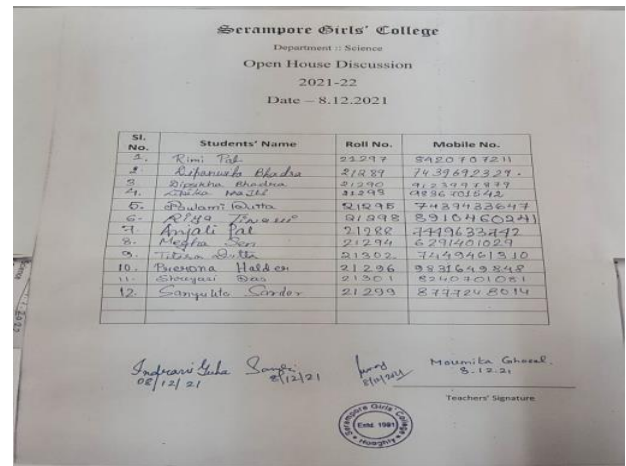 Serampore Girls' College
Department :: Science
Open House Discussion
2021-22
Date – 8.12.2021
Sl. No. Students' Name Roll No. Mobile No.
1. Rimi Pal 21297 8420707211
2. Dipanwita Bhadra 21289 7439692329.
3 Dipekha Bhadra 21290
4. Majhi 21293
5. Poulami Dutta 21295 7439433647
6. Riya Tiwari 21298 8910460241
7. Anjali Pal 21288 7449633742
8. Megha Sen 21294 6291401029
9. Titosa Dutta 21302. 7449461310
10. Prerona Halder 21296 9831649848
11. Shreyasi Das 21301 8240701081
12. Sanyukta Sardar 21299 8777248014
Indrani Guha
08/12/21
8/12/21
8/12/2021
Moumita Ghosal.
8.12.21
Teachers' Signature
Serampore Girls' College
Estd. 1981
Hooghly